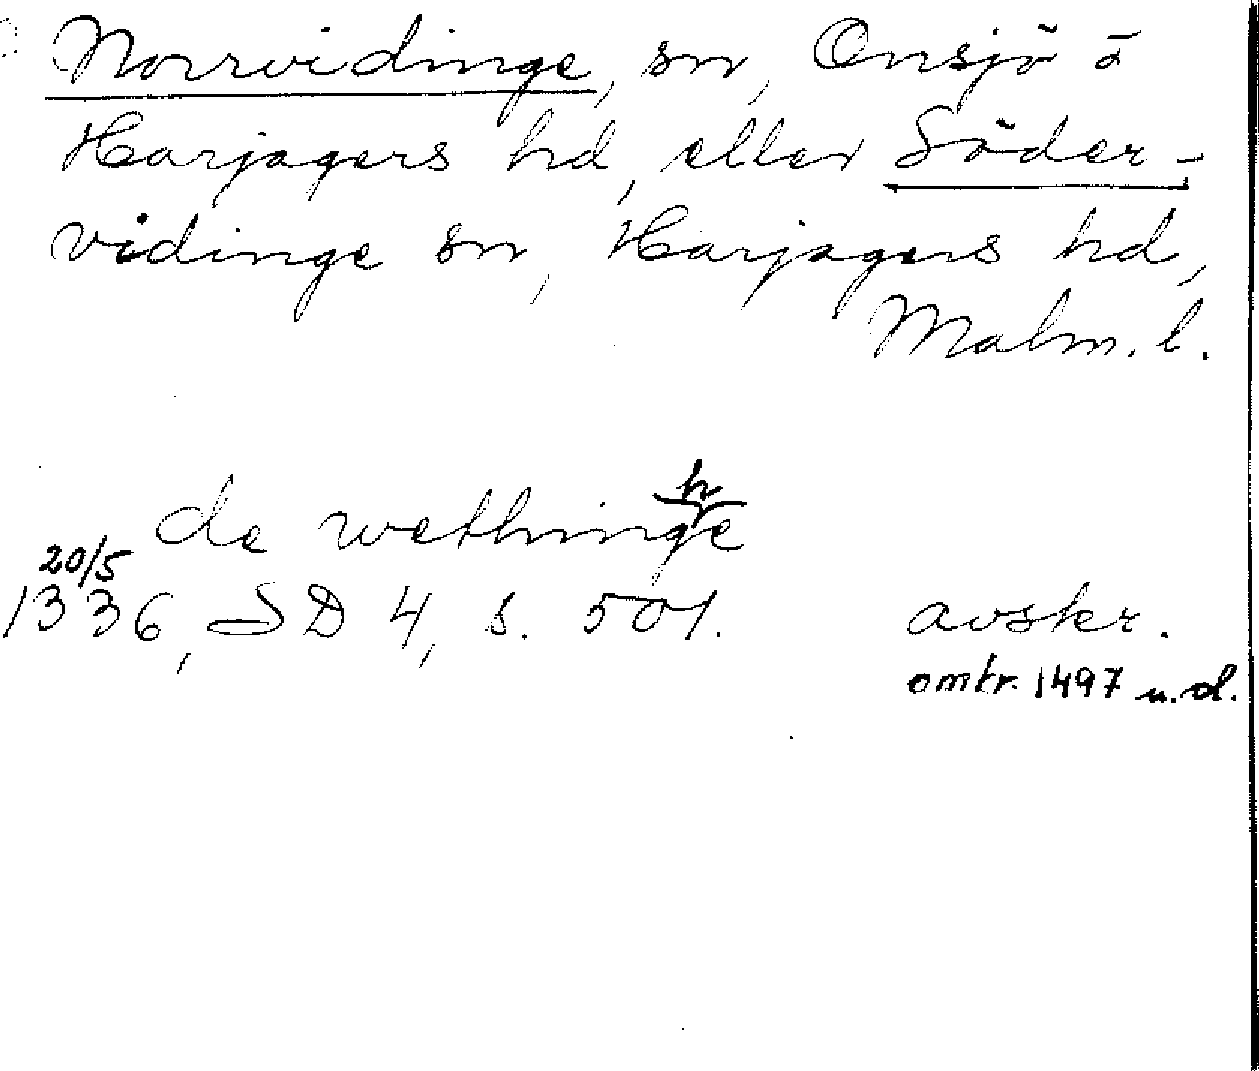 Norrvidinge, sn, Onsjö o
Harjagers hd, eller Söder-
vidinge sn, Harjagers hd,
Malm. l.
de wethinghe
20/5
1336, SD 4, s. 501. avskr.
omkr. 1497 u.d.